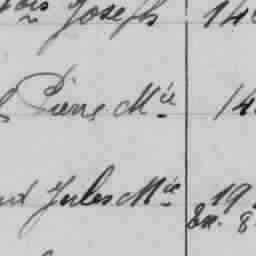 ois Joseph 14
Pierre Mie 14
Jules Mie 19
En. 8